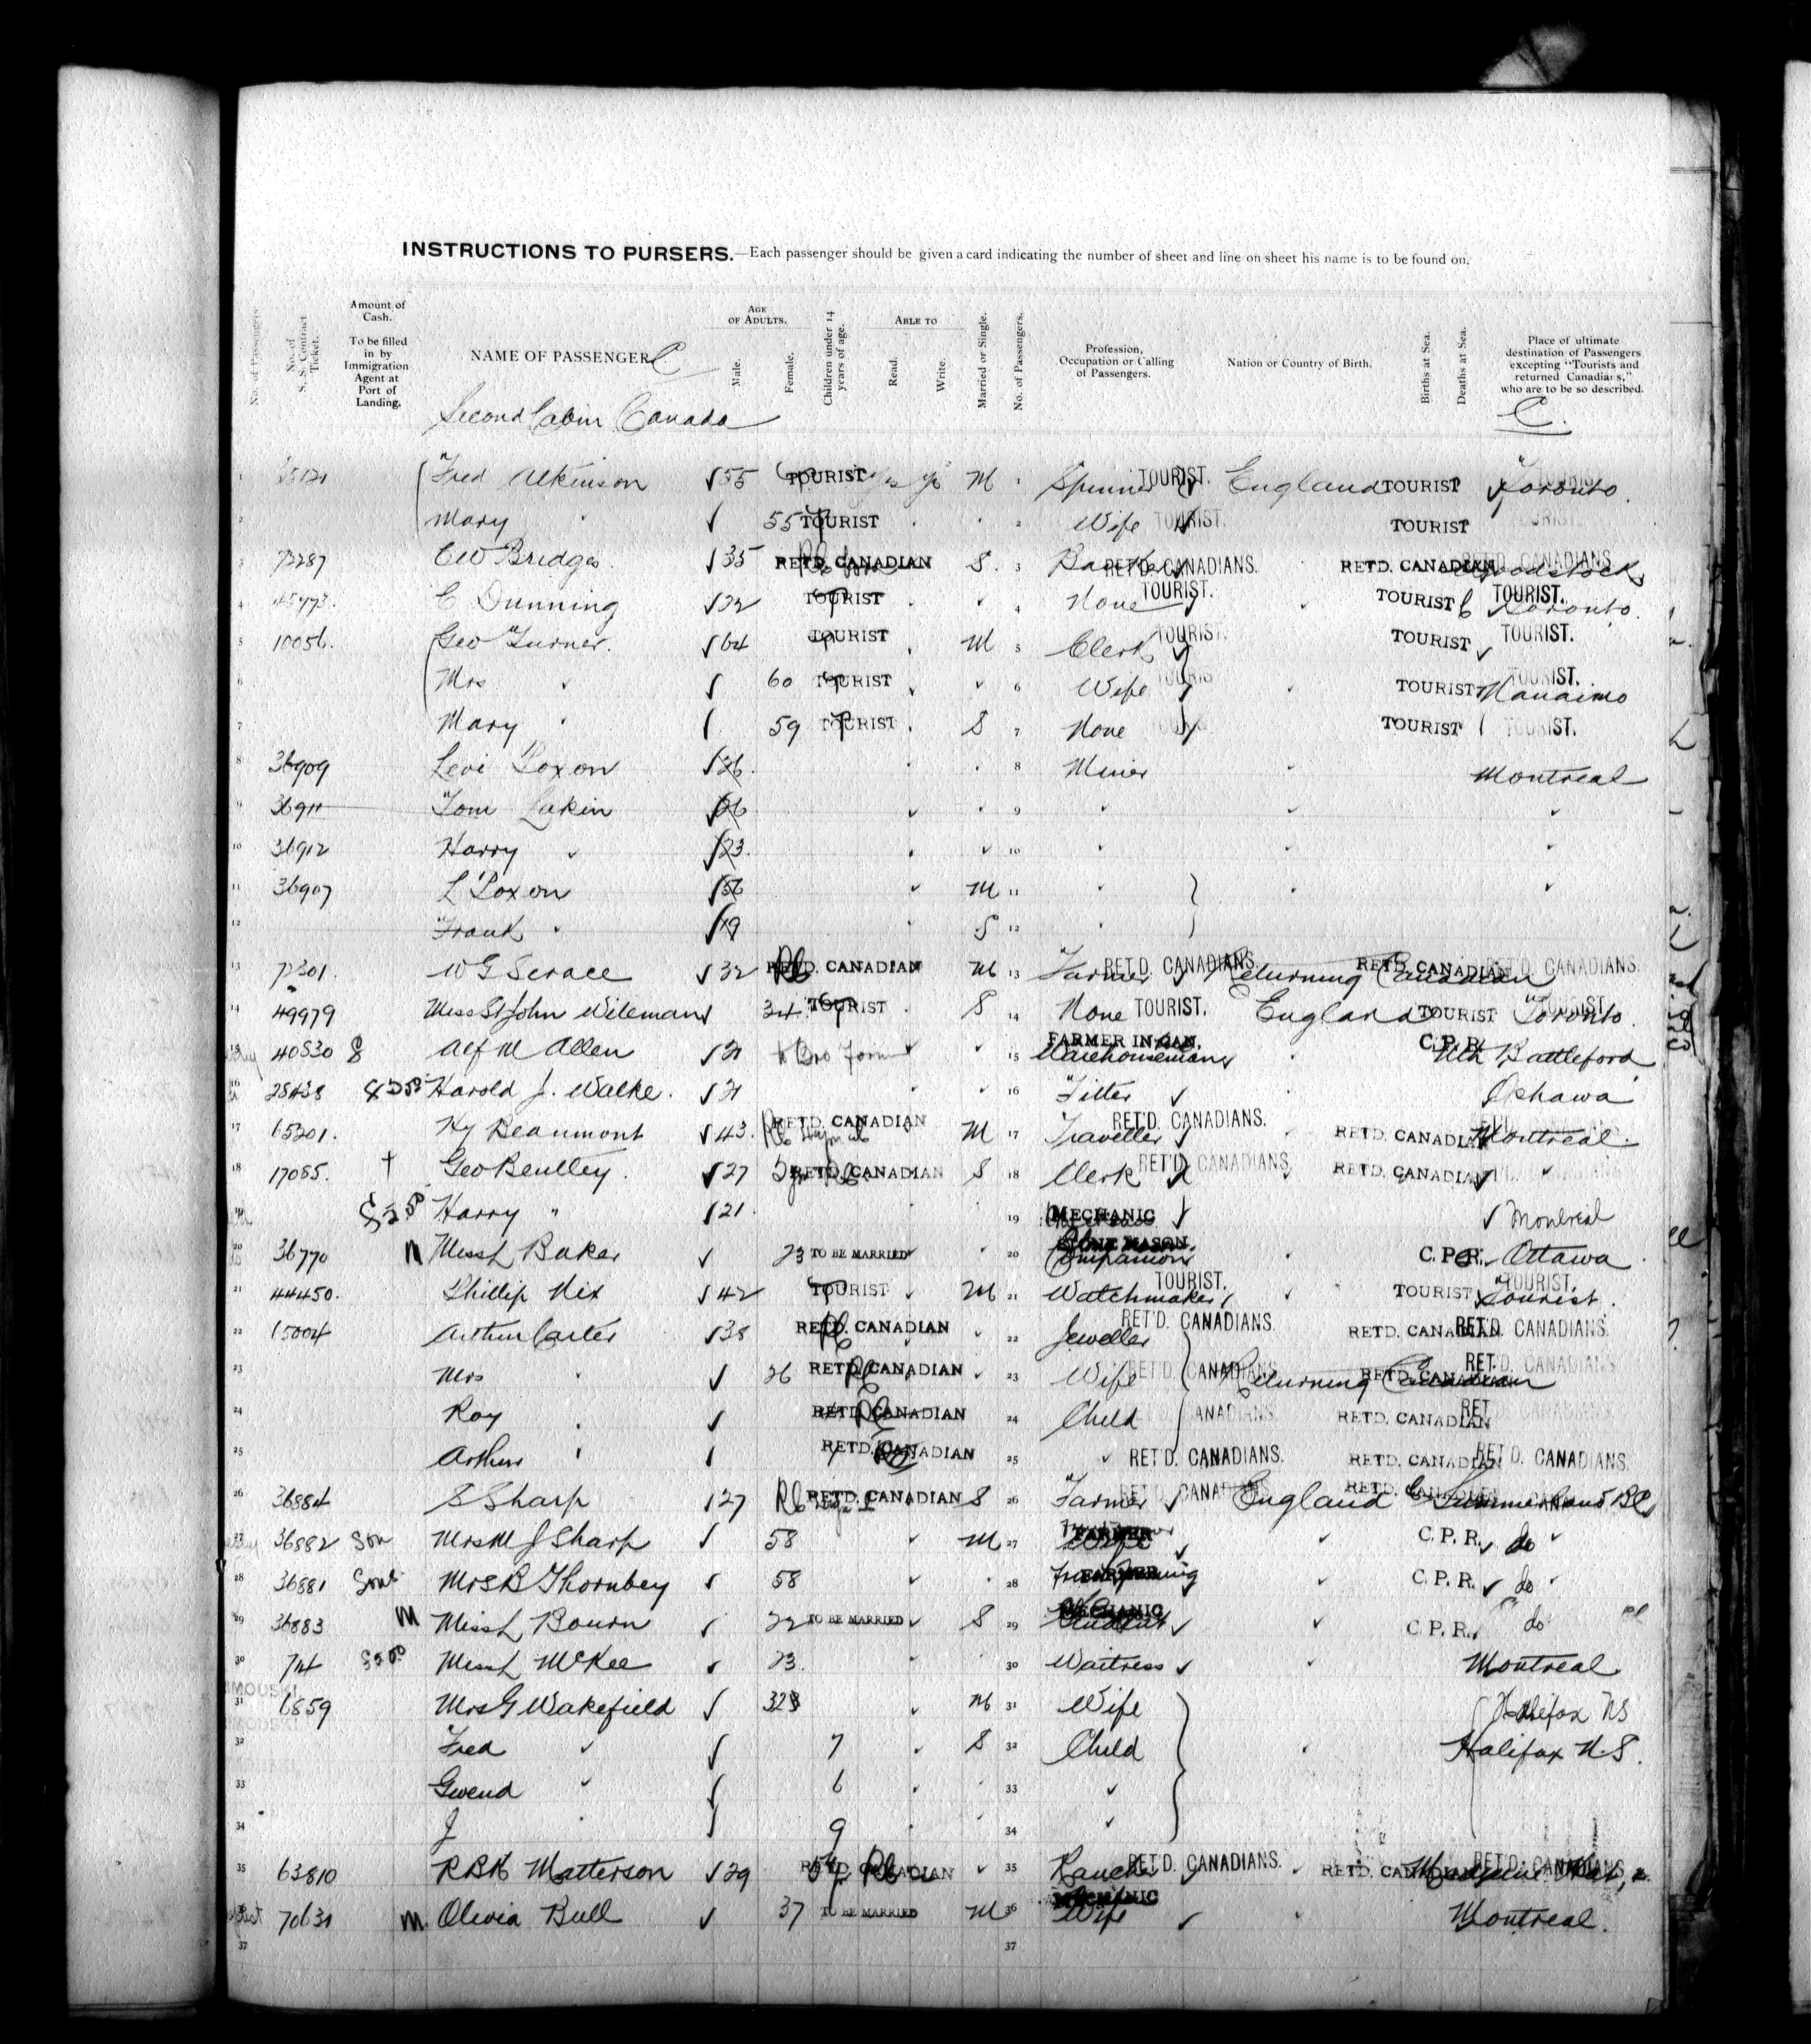 INSTRUCTIONS TO PURSERS.—Each passenger should be given a card indicating the number of sheet and line on sheet his name is to be found on.
No. of Passengers
No. of S. S. Contract Ticket.
Amount of Cash.
To be filled in by Immigration Agent at Port of Landing.
NAME OF PASSENGER
AGE OF ADULTS.
Male.
Female.
Children under 14 years of age.
ABLE TO
Read.
Write.
Married or Single.
No. of Passengers.
Profession, Occupation or Calling of Passengers.
Nation or Country of Birth.
Births at Sea.
Deaths at Sea.
Place of ultimate destination of Passengers excepting "Tourists and returned Canadians," who are to be so described.
C
Second Cabin Canada
C.
1 Fred Atkinson 55 TOURIST M 1 Spinner TOURIST. England TOURIST Toronto.
2 Mary " 55 TOURIST 2 Wife TOURIST. TOURIST
3 72287 CW Bridges. 35 RETD. CANADIAN S. 3 RET'D. CANADIANS. RETD. CANADIAN Woodstock
4 C Dunning 22 TOURIST 4 None TOURIST. TOURIST TOURIST. Toronto.
5 10056. Geo Turner. 64 TOURIST M 5 Clerk TOURIST. TOURIST TOURIST.
6 Mrs " 60 TOURIST 6 Wife TOURIST TOURIST. Nanaimo
7 Mary " 59 TOURIST S 7 None TOURIST TOURIST.
8 36909 Levi Loxon 26. 8 Miner Montreal
9 36911 Tom Lakin 26 9
10 36912 Harry " 23. 10
11 36907 L Loxon 56 M 11
12 Frank " 19 S 12
13 72301. W G Scrace 32 RETD. CANADIAN M 13 Farmer RET'D. CANADIANS. Returning Canadian RETD. CANADIAN RET'D. CANADIANS.
14 49979 Miss St John Wileman 34 TOURIST S 14 None TOURIST. England TOURIST Toronto.
15 40530 8 Alf M Allen 21 15 FARMER IN CAN. Warehouseman C.P.R. Nth Battleford
16 28438 Harold J. Walke. 21 16 Fitter Oshawa
17 65201. Hy Beaumont 43. RETD. CANADIAN M 17 Traveller RET'D. CANADIANS. RETD. CANADIAN Montreal.
18 17085. Geo Bentley. 27 RETD. CANADIAN S 18 Clerk RET'D. CANADIANS RETD. CANADIAN
19 Harry " 21. 19 MECHANIC Montreal
20 36770 M Miss L Baker 23 TO BE MARRIED 20 STONE MASON. Companion C.P.R. Ottawa
21 44450. Phillip Nix 42 TOURIST M 21 Watchmaker TOURIST. TOURIST TOURIST. Tourist.
22 15004 Arthur Carter 38 RETD. CANADIAN 22 Jeweller RET'D. CANADIANS. RETD. CANADIAN RET'D. CANADIANS.
23 Mrs " 26 RETD. CANADIAN 23 Wife RET'D. CANADIANS Returning Canadian RETD. CANADIAN RET'D. CANADIANS
24 Roy " RETD. CANADIAN 24 Child CANADIANS. RETD. CANADIAN
25 Arthur " RETD. CANADIAN 25 RET'D. CANADIANS. RETD. CANADIAN RET'D. CANADIANS.
26 36884 S Sharp 27 RETD. CANADIAN S 26 Farmer RET'D. CANADIANS. England RETD. CANADIAN Summerland BC
27 36882 Son Mrs M J Sharp 58 M 27 FARMER Wife C.P.R. do
28 36881 Son Mrs B Thornbey 58 28 FARMER C.P.R. do
29 36883 M Miss L Bourn 22 TO BE MARRIED S 29 MECHANIC C.P.R. do
30 714 Miss L McKee 23. 30 Waitress Montreal.
31 6859 Mrs G Wakefield M 31 Wife Halifax NS
32 Fred " 7 S 32 Child Halifax N.S.
33 Gwend " 6 33
34 J " 9 34
35 63810 RBH Matterson 29 RETD. CANADIAN 35 Rancher RET'D. CANADIANS. RETD. CANADIAN RET'D. CANADIANS Medicine Hat,
36 70631 M. Olivia Bull 37 TO BE MARRIED M 36 MECHANIC Wife Montreal.
37 37